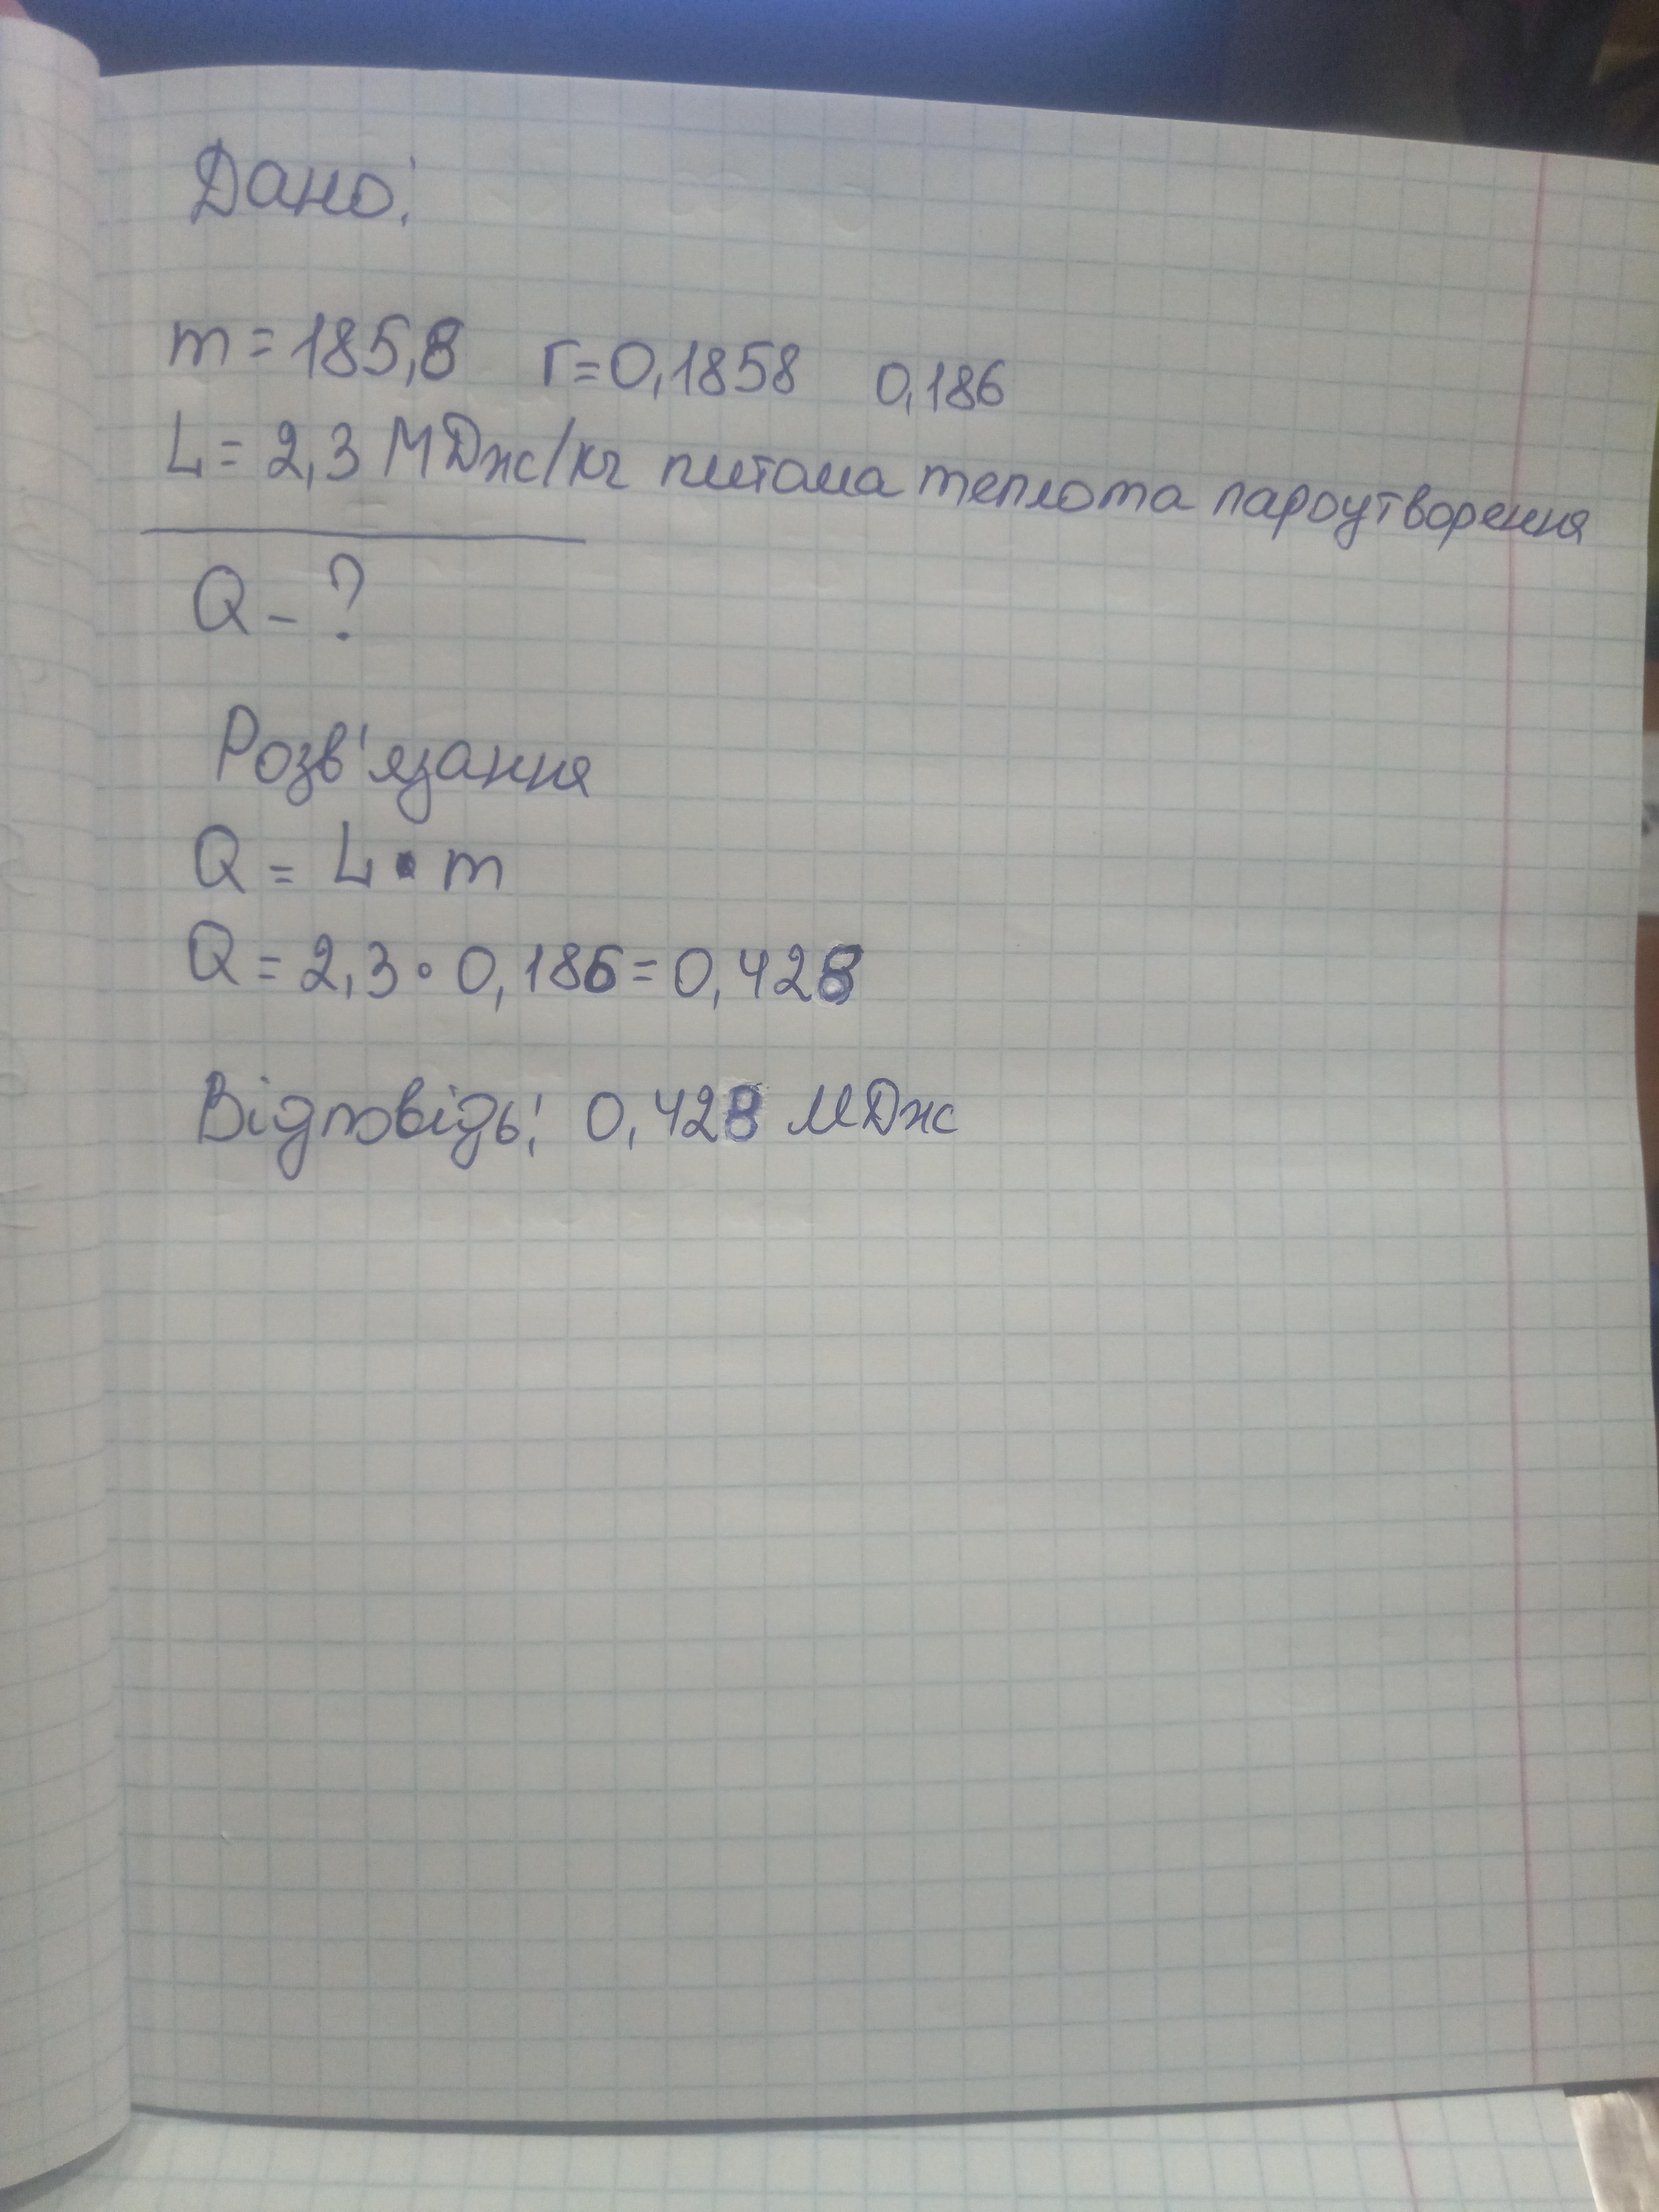 Дано:
m = 185,8 г = 0,1858 0,186
L = 2,3 МДж/кг питома теплота пароутворення
Q - ?
Розв'язання
Q = L • m
Q = 2,3 • 0,186 = 0,428
Відповідь: 0,428 МДж